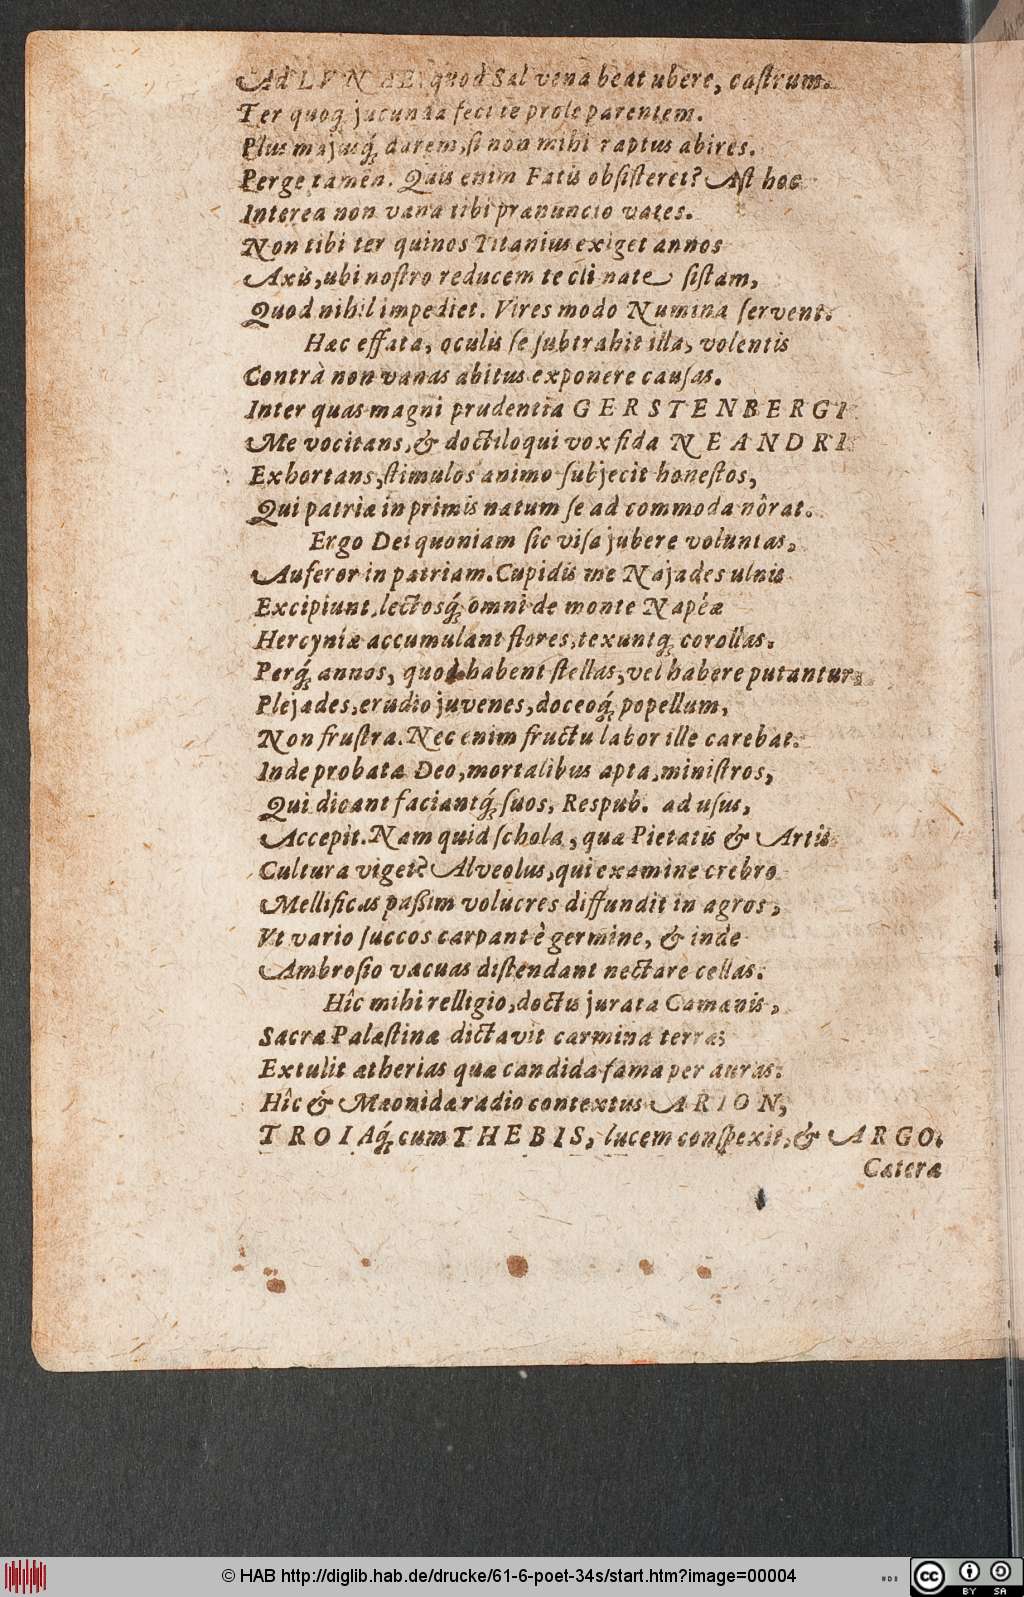 Ad LVNAE, quod Sal vena beat ubere, caſtrum.
Ter quoq; jucunda feci te prole parentem.
Plus majusq́; darem, ſi non mihi raptus abires.
Perge tamen. Quis enim Fatis obſiſteret? Aſt hoc
Interea non vana tibi prænuncio vates.
Non tibi ter quinos Titanius exiget annos
Axis, ubi noſtro reducem te cli nate ſiſtam,
Quod nihil impediet. Vires modo Numina ſervent.
Hæc effata, oculis ſe ſubtrahit illa, volentis
Contrà non vanas abitus exponere cauſas.
Inter quas magni prudentia GERSTENBERGI
Me vocitans, & doctiloqui vox fida NEANDRI
Exhortans, ſtimulos animo ſubjecit honeſtos,
Qui patriæ inprimis natum ſe ad commoda nôrat.
Ergo Dei quoniam ſic viſa jubere voluntas,
Auferor in patriam. Cupidis me Najades ulnis
Excipiunt, lectosq́; omni de monte Napéæ
Hercyniæ accumulant flores, texuntq; corollas.
Perq́; annos, quod habent ſtellas, vel habere putantur,
Plejades, erudio juvenes, doceoq́; popellum,
Non fruſtra. Nec enim fructu labor ille carebat.
Inde probatæ Deo, mortalibus apta, miniſtros,
Qui dicant faciantq́; ſuos, Respub. ad uſus,
Accepit. Nam quid ſchola, qua Pietatis & Artis
Cultura viget? Alveolus, qui examine crebro
Mellificas paßim volucres diffundit in agros,
Vt vario ſuccos carpant è germine, & inde
Ambroſio vacuas diſtendant nectare cellas.
Hîc mihi relligio, doctis jurata Camænis,
Sacræ Palæſtinæ dictavit carmina terræ;
Extulit ætherias quæ candida fama per auras.
Hîc & Mæonidæ radio contextus ARION,
TROIAq́; cum THEBIS, lucem conſpexit, & ARGO.
Cætera
© HAB http://diglib.hab.de/drucke/61-6-poet-34s/start.htm?image=00004
cc BY SA